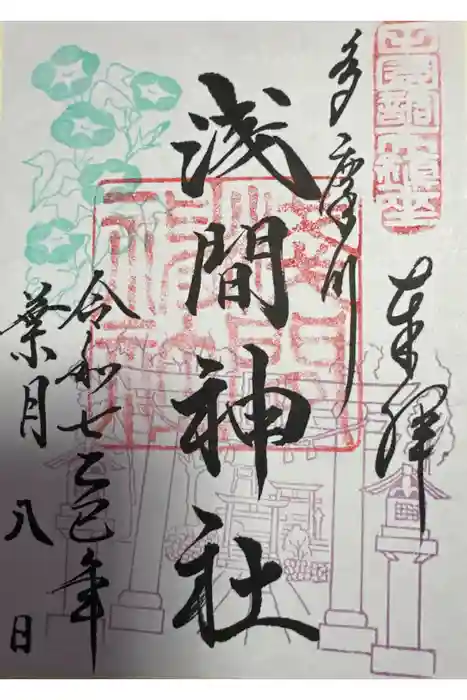 奉拝
多摩川
浅間神社
令和七乙巳年
葉月 八日
浅間神社